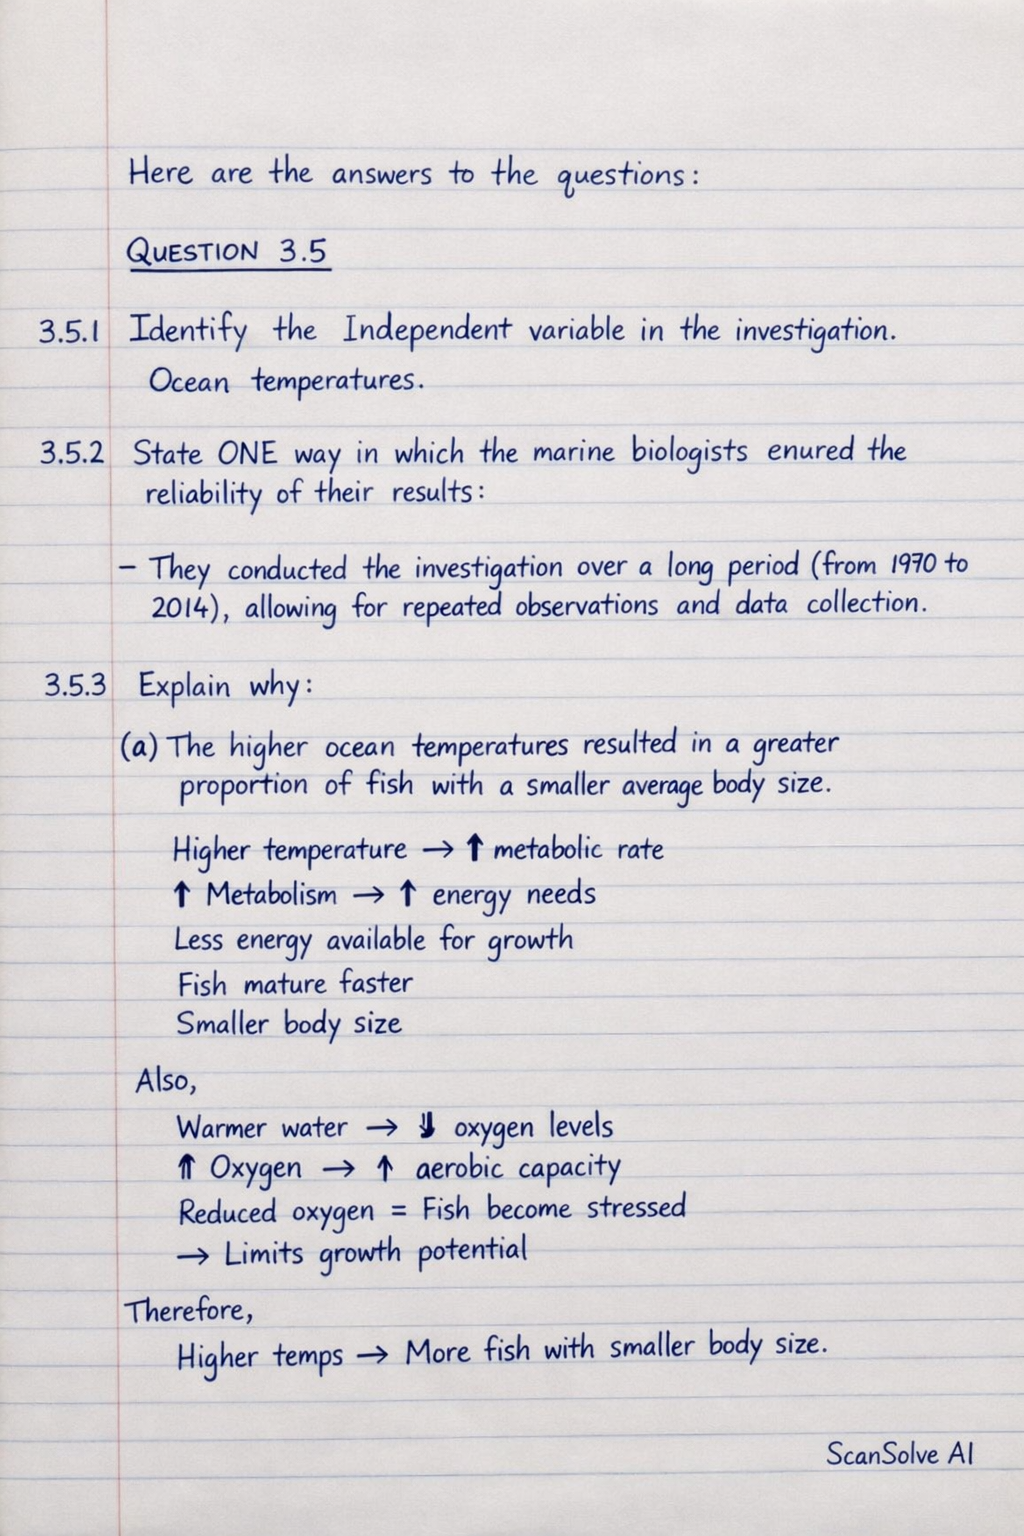 Here are the answers to the questions:
QUESTION 3.5
3.5.1 Identify the Independent variable in the investigation.
Ocean temperatures.
3.5.2 State ONE way in which the marine biologists enured the
reliability of their results:
– They conducted the investigation over a long period (from 1970 to
2014), allowing for repeated observations and data collection.
3.5.3 Explain why:
(a) The higher ocean temperatures resulted in a greater
proportion of fish with a smaller average body size.
Higher temperature → ↑ metabolic rate
↑ Metabolism → ↑ energy needs
Less energy available for growth
Fish mature faster
Smaller body size
Also,
Warmer water → ↓ oxygen levels
↑ Oxygen → ↑ aerobic capacity
Reduced oxygen = Fish become stressed
→ Limits growth potential
Therefore,
Higher temps → More fish with smaller body size.
ScanSolve AI